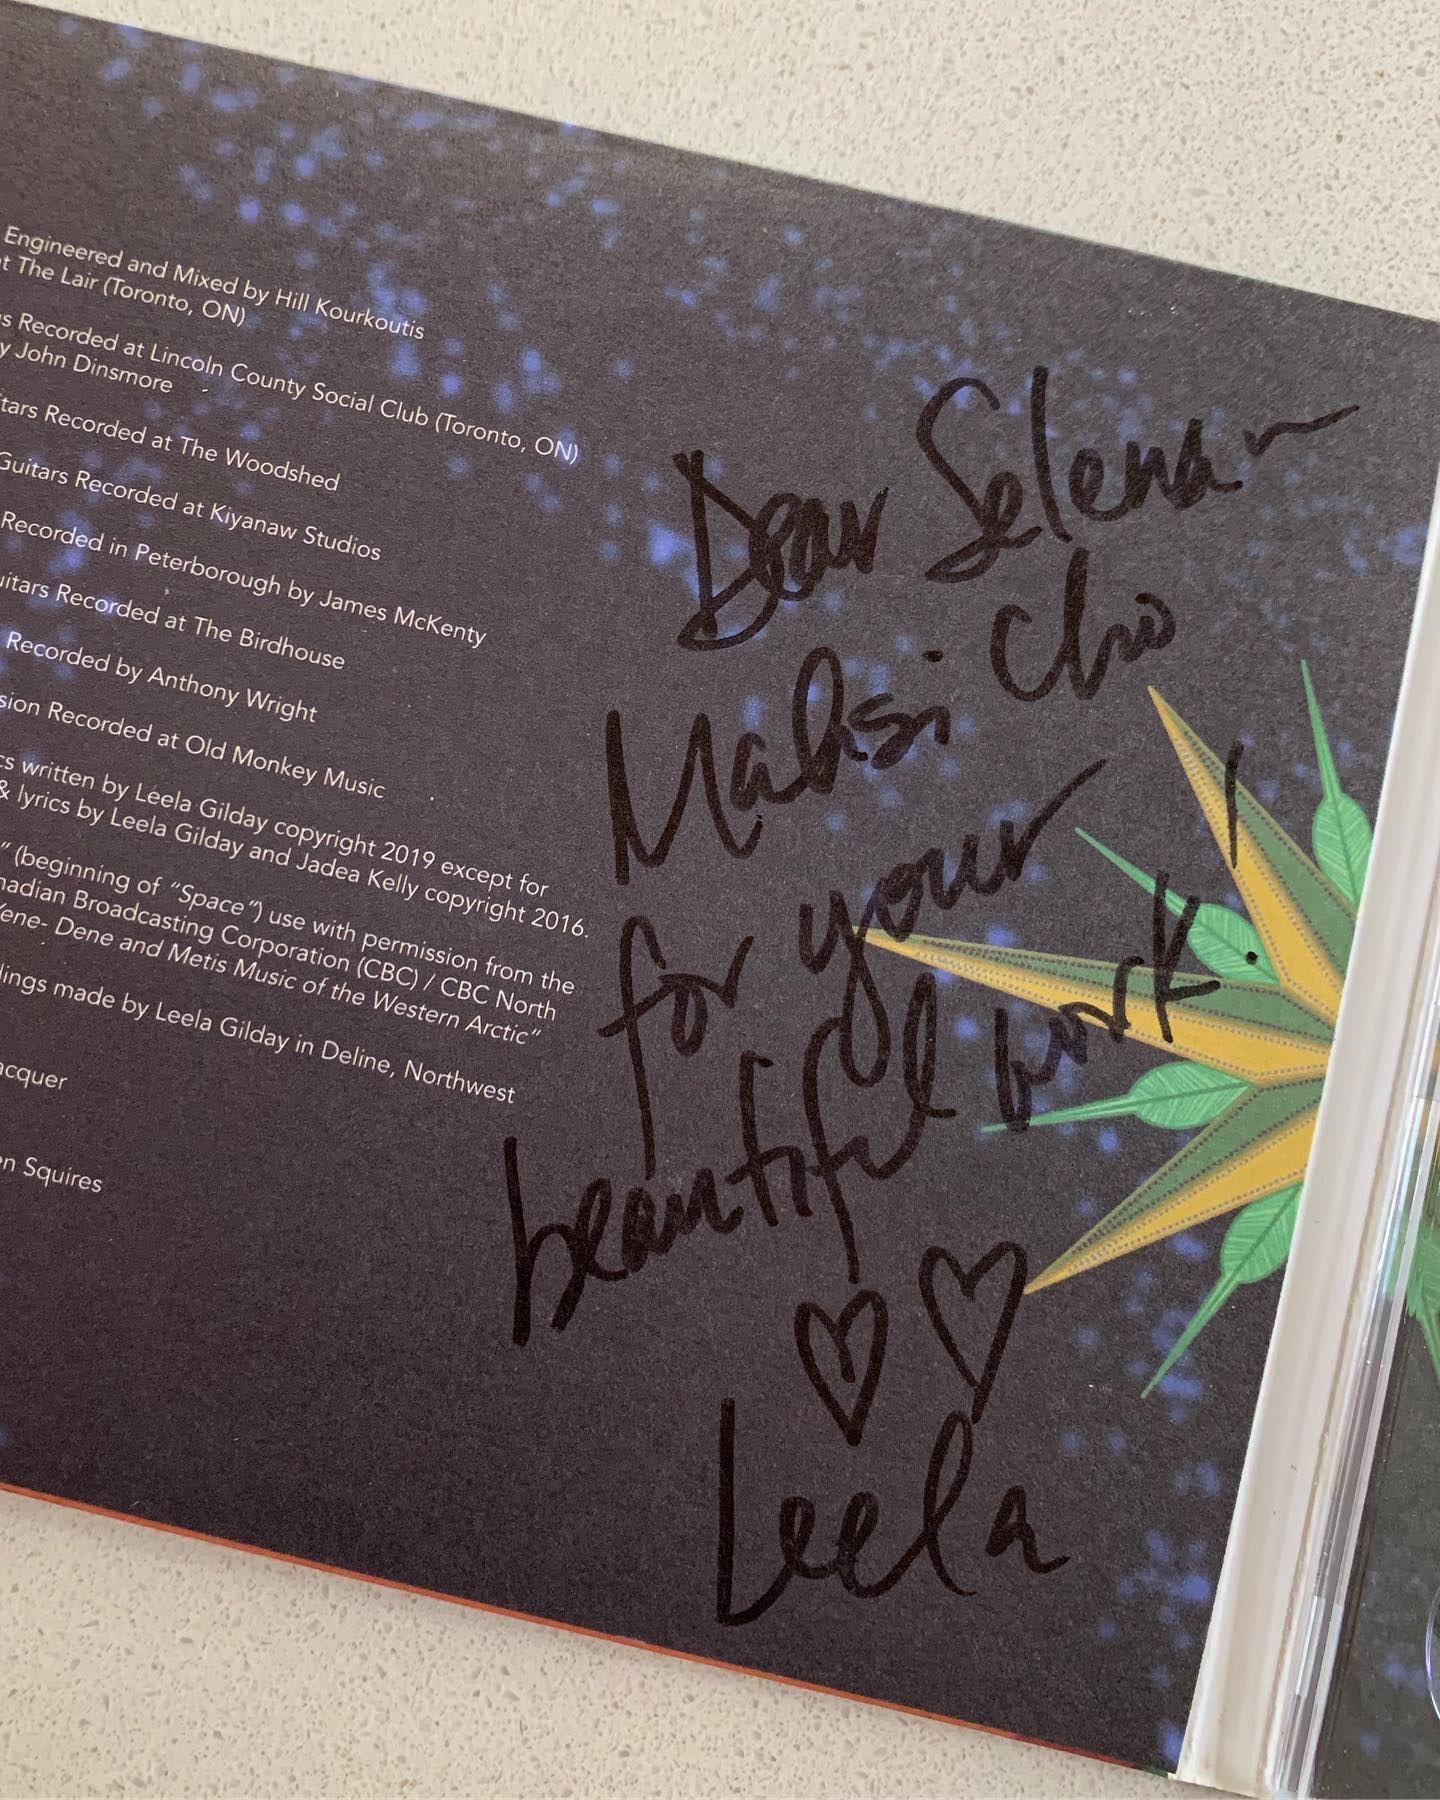 Engineered and Mixed by Hill Kourkoutis
at The Lair (Toronto, ON)
Recorded at Lincoln County Social Club (Toronto, ON)
by John Dinsmore
tars Recorded at The Woodshed
Guitars Recorded at Kiyanaw Studios
Recorded in Peterborough by James McKenty
uitars Recorded at The Birdhouse
Recorded by Anthony Wright
sion Recorded at Old Monkey Music
cs written by Leela Gilday copyright 2019 except for
& lyrics by Leela Gilday and Jadea Kelly copyright 2016.
" (beginning of "Space") use with permission from the
nadian Broadcasting Corporation (CBC) / CBC North
Yene- Dene and Metis Music of the Western Arctic"
dings made by Leela Gilday in Deline, Northwest
acquer
en Squires
Dear Selena ~
Mahsi Cho
for your
beautiful work!
♡ ♡
Leela